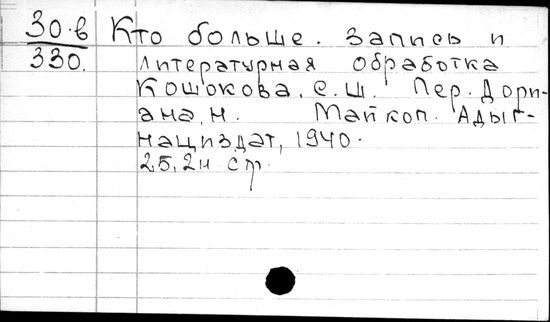 30.в Кто больше. Запись и
330. литературная обработка
Кошокова, С.Ш. Пер. Дори-
ана, Н. Майкоп. Адыг-
нациздат, 1940.
25, 2н ср.